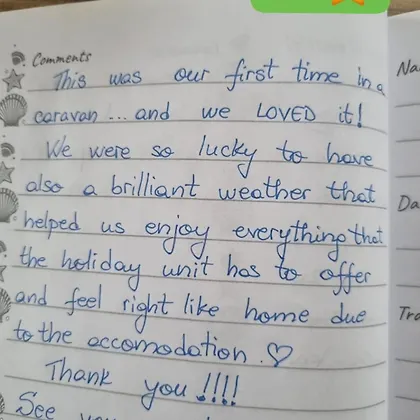 Comments
This was our first time in a
caravan ... and we LOVED it!
We were so lucky to have
also a brilliant weather that
helped us enjoy everything that
the holiday unit has to offer
and feel right like home due
to the accomodation. ♡
Thank you !!!!
See
Na
Da
Tra